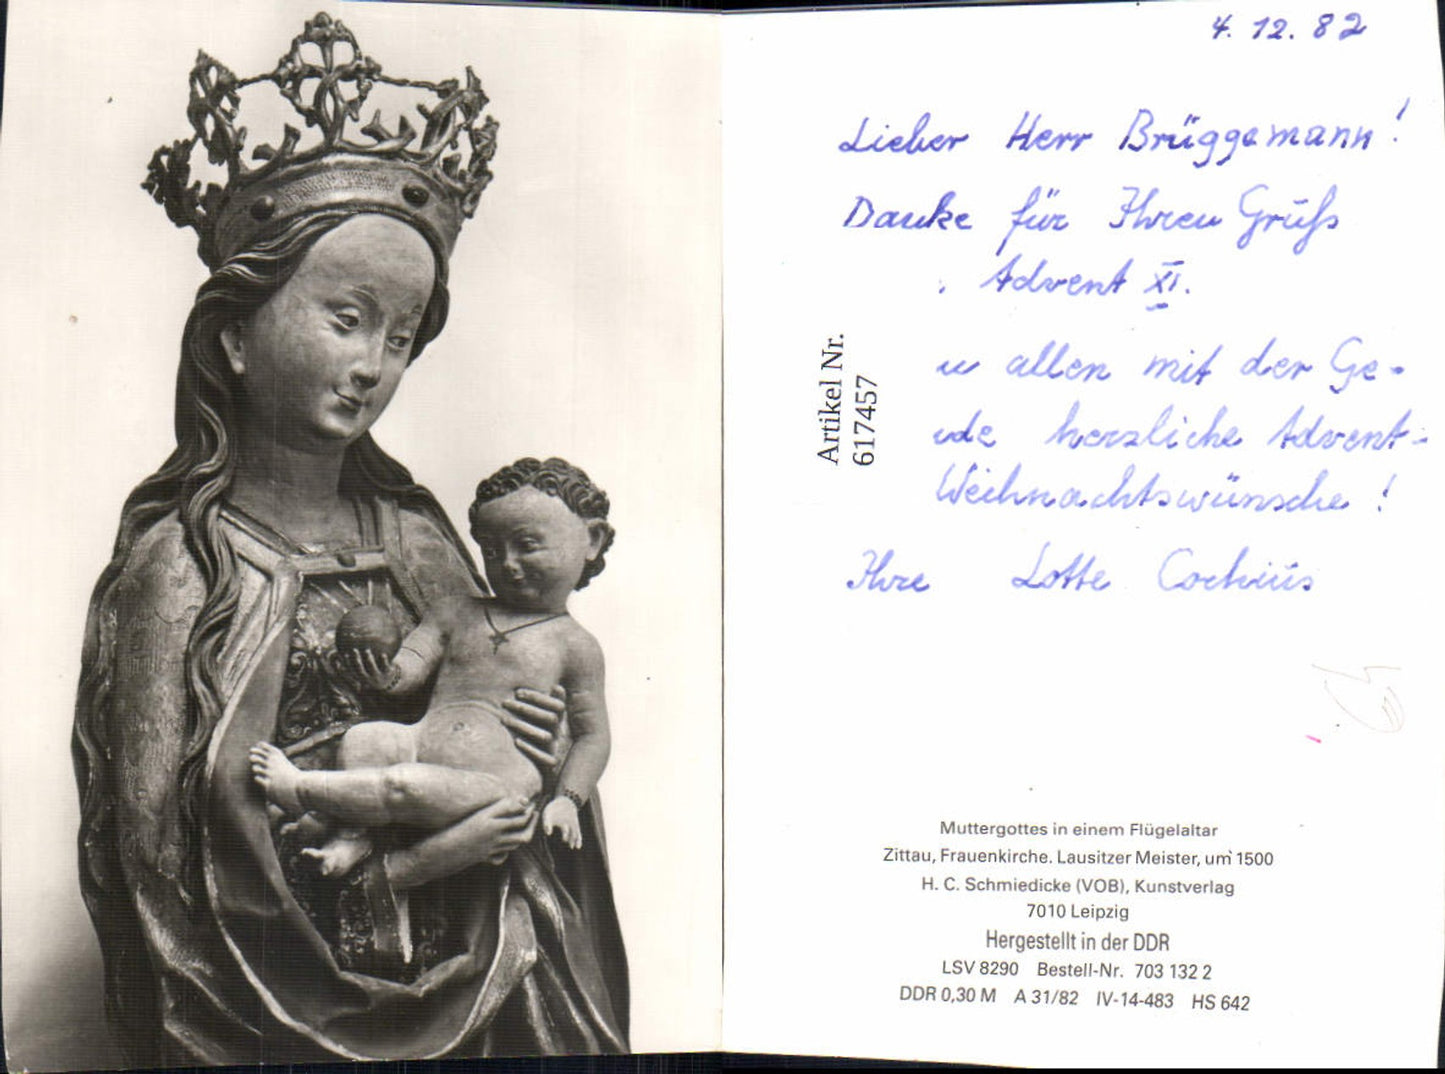 4. 12. 82
Lieber Herr Brüggemann!
Danke für Ihren Gruß
. Advent XI.
u allen mit der Ge-
de herzliche Advent-
Weihnachtswünsche!
Ihre Lotte
Artikel Nr.
617457
Muttergottes in einem Flügelaltar
Zittau, Frauenkirche. Lausitzer Meister, um 1500
H. C. Schmiedicke (VOB), Kunstverlag
7010 Leipzig
Hergestellt in der DDR
LSV 8290 Bestell-Nr. 703 132 2
DDR 0,30 M A 31/82 IV-14-483 HS 642